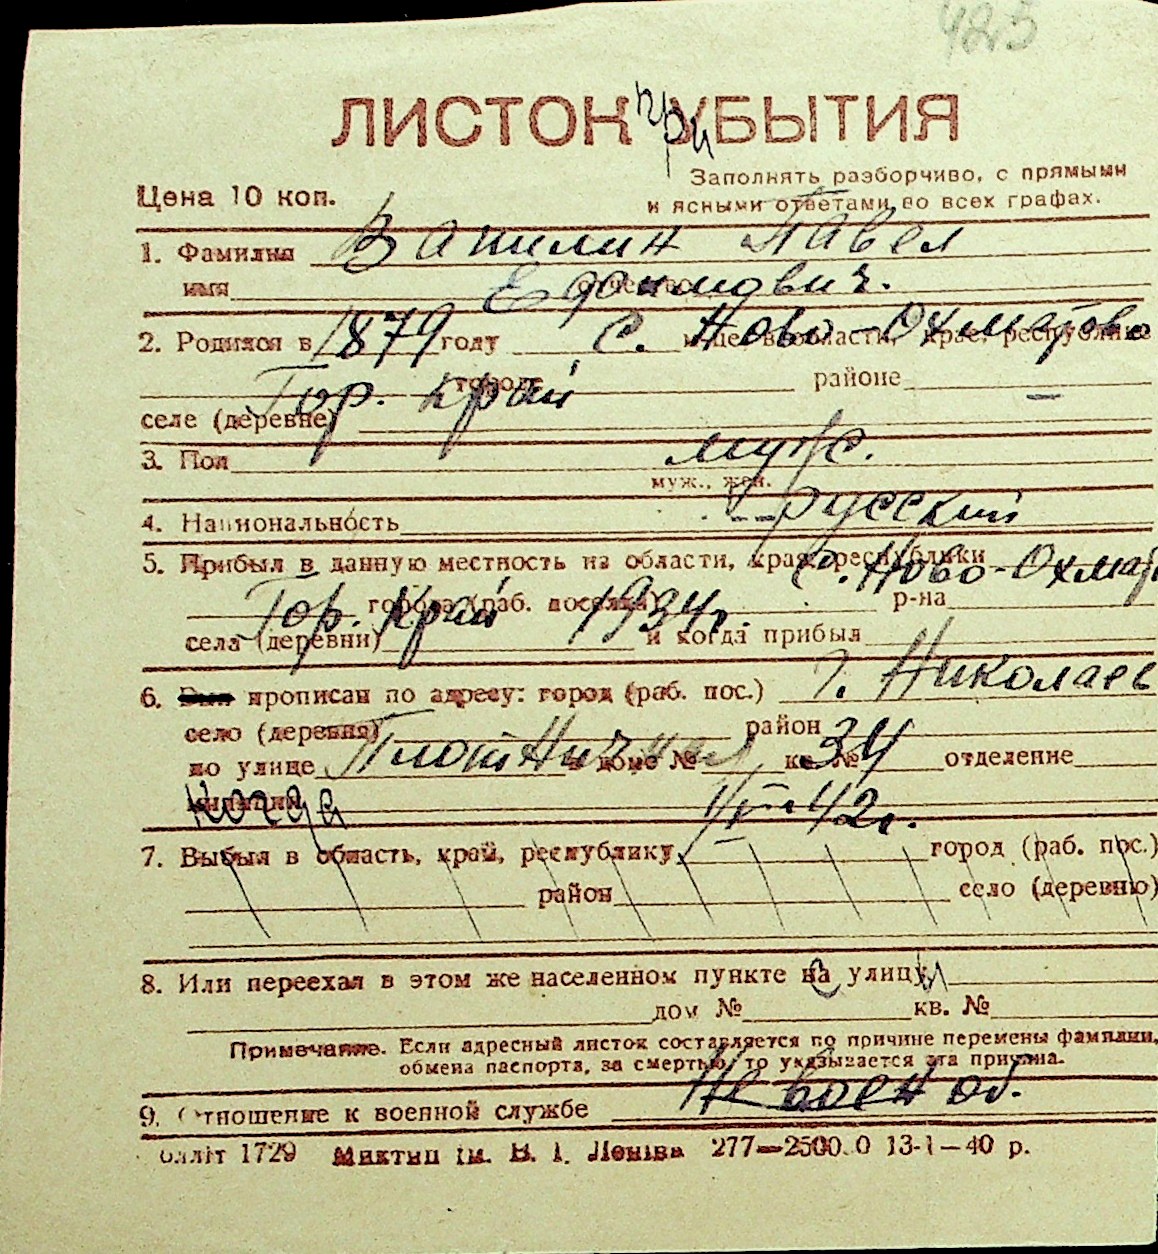 425
ЛИСТОК при УБЫТИЯ
Цена 10 коп.
Заполнять разборчиво, с прямыми
и ясными ответами во всех графах.
1. Фамилия Вапилин Павел
имя отчество Ефдокимович.
2. Родился в 1879 году С. Ново-Охматово
Гор. край городе районе —
селе (деревне)
3. Пол мужс.
муж., жен.
4. Национальность русский
5. Прибыл в данную местность из области, края, республики С. Ново-Охмат
Гор. край города (раб. поселка) 1934г. р-на
села (деревни) и когда прибыл
6. Был прописан по адресу: город (раб. пос.) г. Николаев
село (деревня) район
по улице Плотничная в доме № 34 кв. № отделение
милиции Когда 1/V-42г.
7. Выбыл в область, край, республику город (раб. пос.)
район село (деревню)
8. Или переехал в этом же населенном пункте с улицы
дом № кв. №
Примечание. Если адресный листок составляется по причине перемены фамилии,
обмена паспорта, за смертью, то указывается эта причина.
9. Отношение к военной службе Не воен об.
1729 Миктип ім. В. І. Леніна 277—2500.0 13-1—40 р.